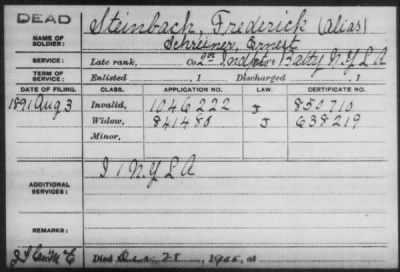 DEAD
NAME OF SOLDIER:
Steinbach, Frederick (alias)
Schreiner, Ernest
SERVICE:
Late rank, Co. 2nd Indpt Batty N.Y.L.A
TERM OF SERVICE:
Enlisted , 1 Discharged , 1
DATE OF FILING. CLASS. APPLICATION NO. LAW. CERTIFICATE NO.
1891 Aug 3 Invalid, 1046222 J 850710
Widow, 841480 J 638219
Minor,
ADDITIONAL SERVICES:
I 1 N.Y.L.A
REMARKS:
Died Dec 28, 1905, at